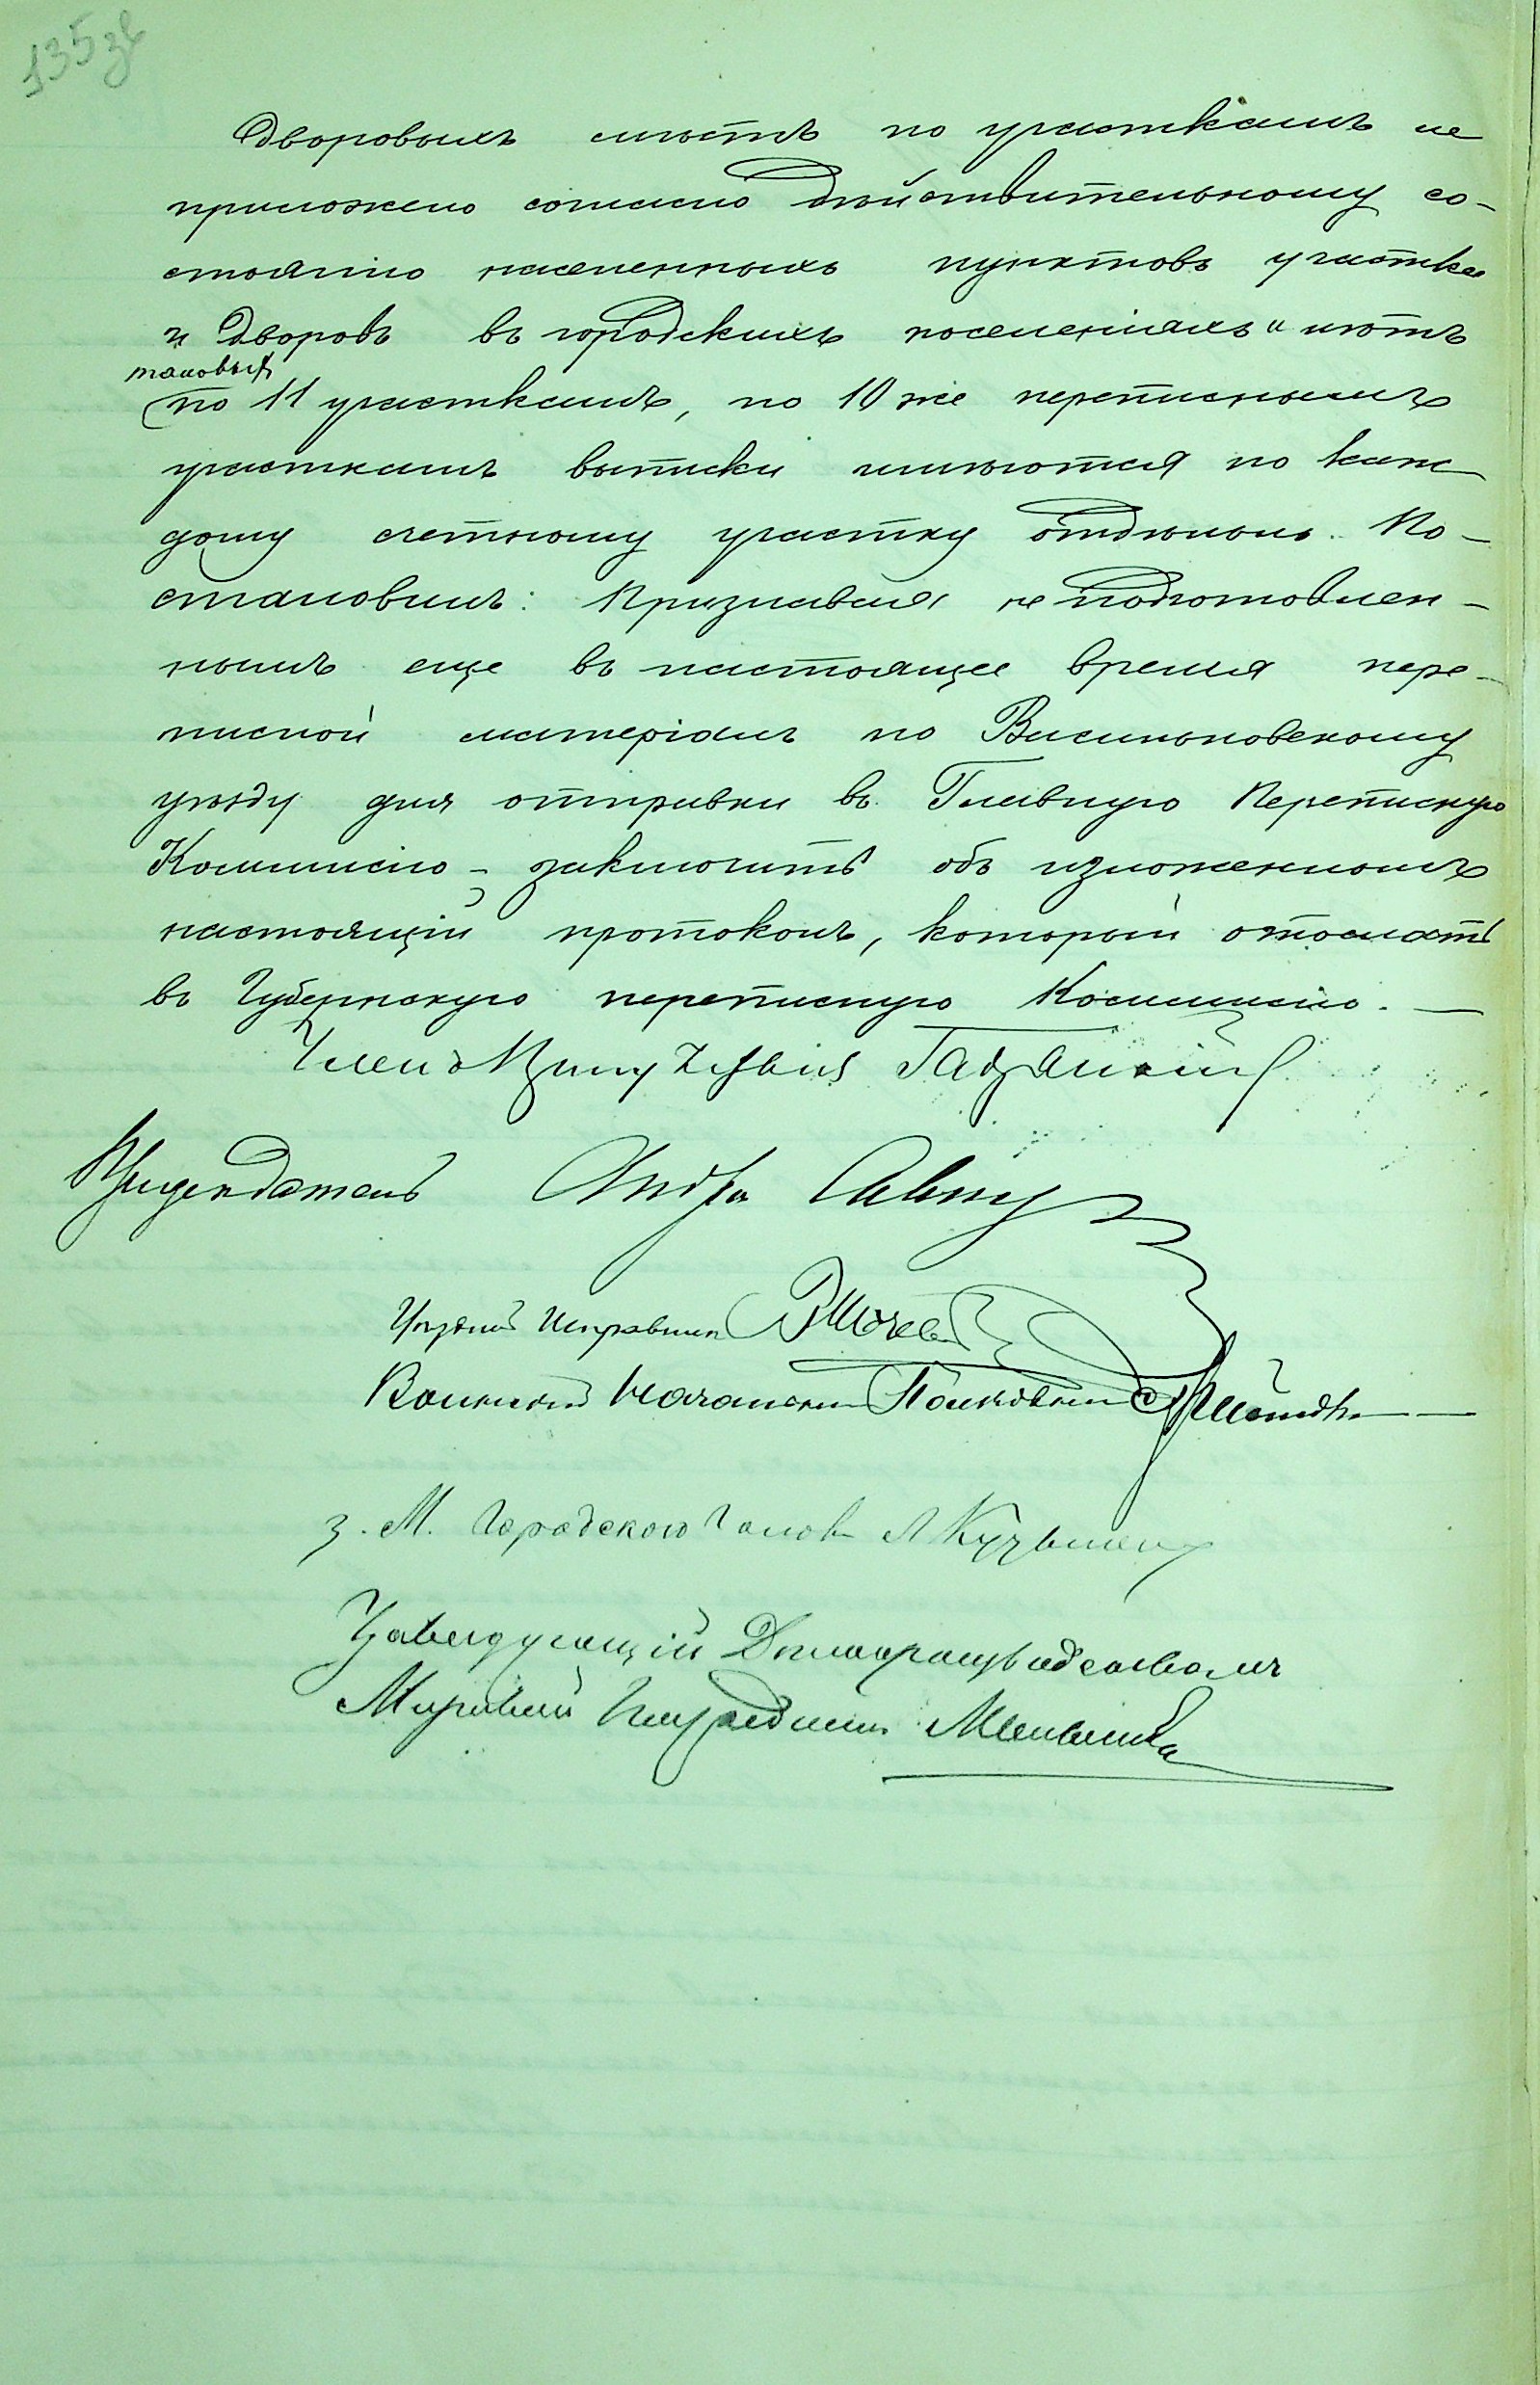 135 зв
Дворовыхъ мѣстъ по участкамъ не
приложено согласно дѣйствительному со-
стоянію населенныхъ пунктовъ участка
и Дворовъ въ городскихъ поселеніяхъ и нѣтъ
таковыхъ
по 11 участкамъ, по 10 же переписнымъ
участкамъ выписки имѣются по каж
дому счетному участку отдѣльно. По-
становилъ: Признавая не подготовлен-
нымъ еще въ настоящее время пере-
писной матеріалъ по Васильковскому
уѣзду для отправки въ Главную Переписную
Коммисію – заключить объ изложенномъ
настоящій протоколъ, который отослать
въ Губернскую переписную Коммисію. —
Членъ
Предсѣдатель
Уѣздный Исправникъ
Воинскій Начальникъ Полковникъ
З. М. Городского Головы
Завѣдующій
Мировой Посредникъ